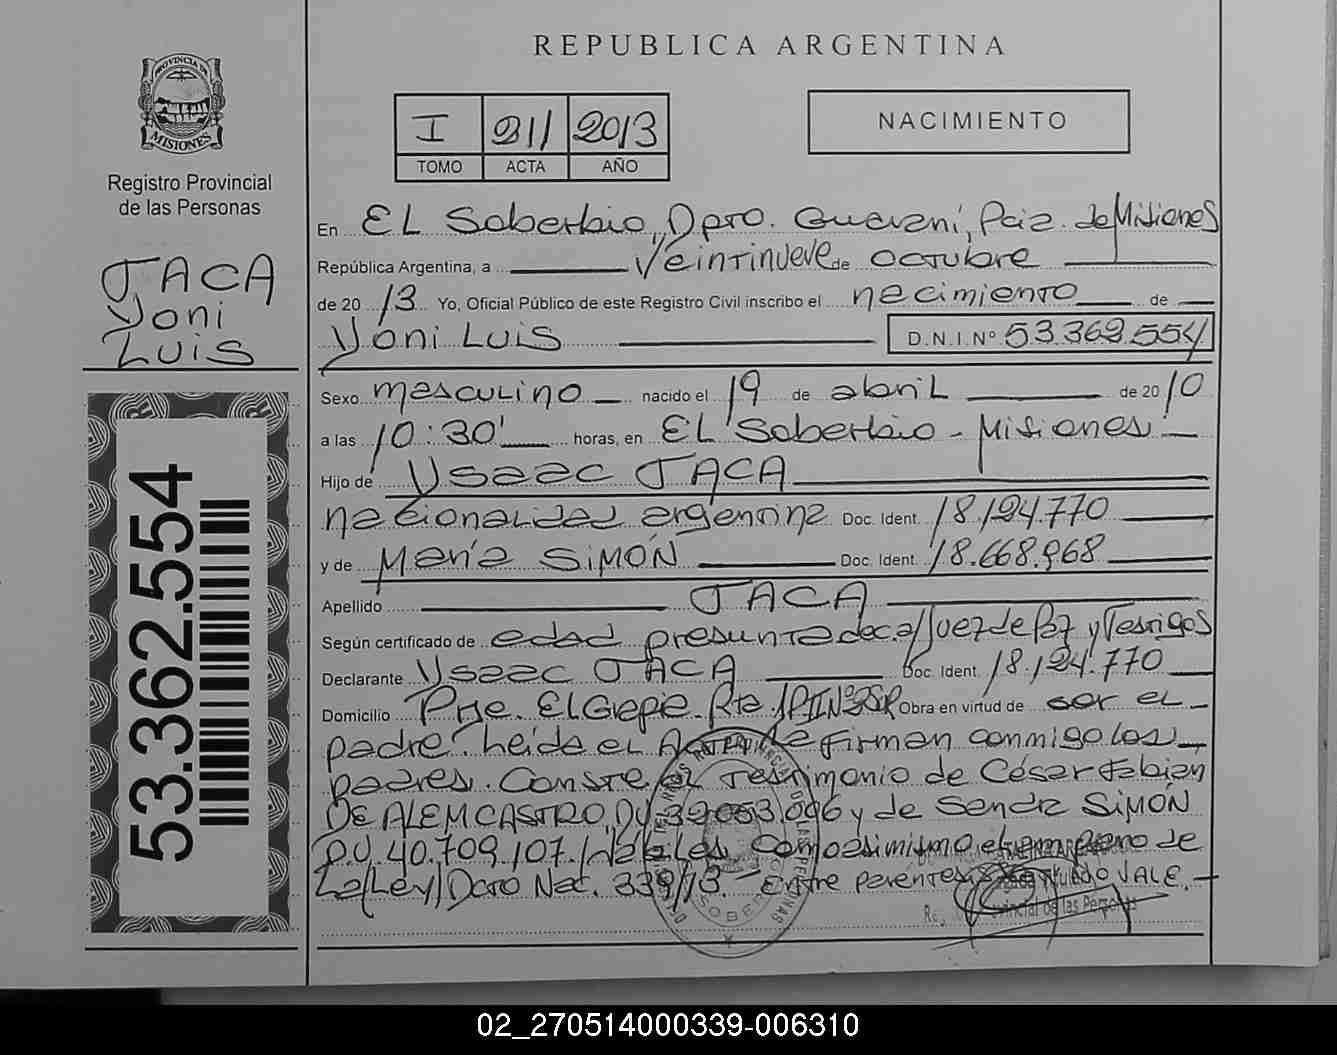 REPUBLICA ARGENTINA
PROVINCIA DE
MISIONES
Registro Provincial
de las Personas
I 211 2013
TOMO ACTA AÑO
NACIMIENTO
JACA
Yoni
Luis
53.362.554
En EL Soberbio, Dpto. Guaraní, Pcia. de Misiones
República Argentina, a Veintinueve de octubre
de 2013 Yo, Oficial Público de este Registro Civil inscribo el nacimiento de
Yoni Luis D.N.I.Nº 53.362.554
Sexo masculino nacido el 19 de abril de 2010
a las 10:30' horas, en EL Soberbio - Misiones
Hijo de Ysaac JACA
nacionalidad argentina Doc. Ident. 18.124.770
y de María SIMÓN Doc. Ident. 18.668.968
Apellido JACA
Según certificado de edad presunta dec. a/Juez de Paz y Testigos
Declarante Ysaac JACA Doc. Ident. 18.124.770
Domicilio Pje. El Gepie. Rta. Obra en virtud de ser el
padre. Leida el Acta, la firman conmigo los
padres. Conste el Testimonio de César Fabian
DE ALEM CASTRO, DU 39.053.096 y de Sandra SIMÓN
D.U. 40.709.107. Hábiles. Como asimismo el amparo de
La/Ley/Dcto Nac. 339/13. Entre parentesis VALE.
de las Personas
02_270514000339-006310